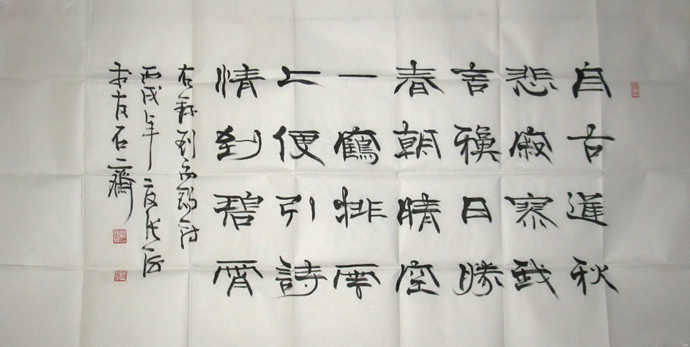 自古逢秋
悲寂寥我
言秋日勝
春朝晴空
一鶴排雲
上便引詩
情到碧霄
右錄刘禹錫詩
丙戌年
石齋